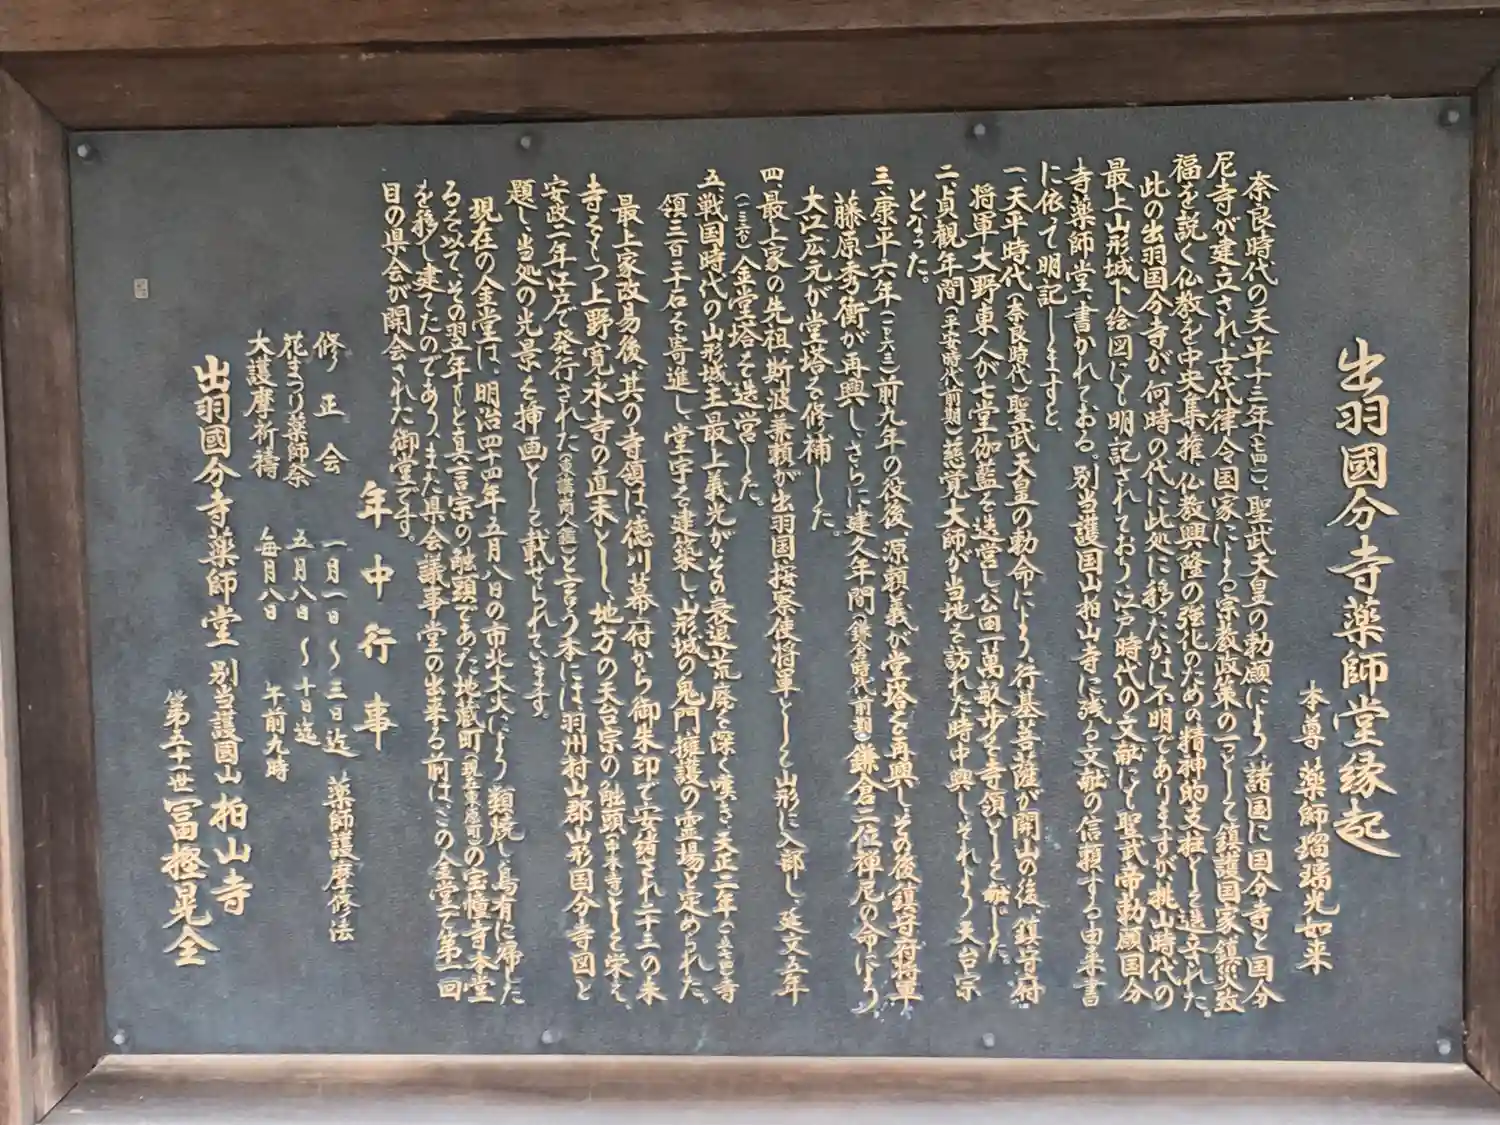 出羽國分寺薬師堂縁起
本尊 薬師瑠璃光如来
奈良時代の天平十三年(七四一)、聖武天皇の勅願により諸国に国分寺と国分
尼寺が建立され古代律令国家による宗教政策の一つとして鎮護国家、鎮災致
福を説く仏教を中央集権、仏教興隆の強化のための精神的支柱として造立された。
此の出羽国分寺が、何時の代に此処に移たかは不明でありますが桃山時代の
最上山形城下絵図にも明記されており江戸時代の文献にて聖武帝勅願国分
寺薬師堂、書かれておる。別当護国山柏山寺に残る文献の信頼する由来書
に依て明記しますと、
一、天平時代(奈良時代)聖武天皇の勅命により、行基菩薩が開山の後、鎮守府
将軍大野東人が七堂伽藍を造営し公田一萬畝歩を寺領として献じた
二、貞観年間(平安時代前期)慈覚大師が当地を訪れた時中興しそれより天台宗
となった。
三、康平六年(一〇六三)前九年の役後、源頼義が堂塔を再興しその後鎮守府将軍
藤原秀衡が再興し、さらに建久年間(鎌倉時代前期)鎌倉二位禅尼の命により、
大江広元が堂塔を修補した。
四、最上家の先祖、斯波兼頼が出羽国按察使将軍として山形に入部し、延文五年
(一三六〇)金堂塔を造営した。
五、戦国時代の山形城主最上義光がその衰退荒摩を深く嘆き天正二年(一五七四)寺
領三百三千石を寄進し堂宇を建築し山形城の鬼門、擁護の霊場と定められた。
最上家改易後、其の寺領は、徳川幕府から御朱印で安堵され二十三の末
寺をもつ上野寛永寺の直末とし、地方の天台宗の触頭(中本寺)として栄え、
安政二年江戸で発行された(東講商人鑑)と言う本には羽州村山郡山形国分寺図と
題し、当処の光景を挿画として載せられています。
現在の金堂は、明治四十四年五月八日の市北大火により類焼し烏有に帰した
るを以て、その翌年もと真言宗の触頭であった地蔵町(現在東原町)の宝幢寺本堂
を移し建てたのであり、また県会議事堂の出来る前は、この金堂で第一回
目の県会が開会された御堂です。
年中行事
修正会 一月一日〜三日迄 薬師護摩修法
花まつり薬師祭 五月八日〜十日迄
大護摩祈祷 毎月八日 午前九時
出羽國分寺薬師堂 別当護国山 柏山寺
第五十一世 冨樫晃全